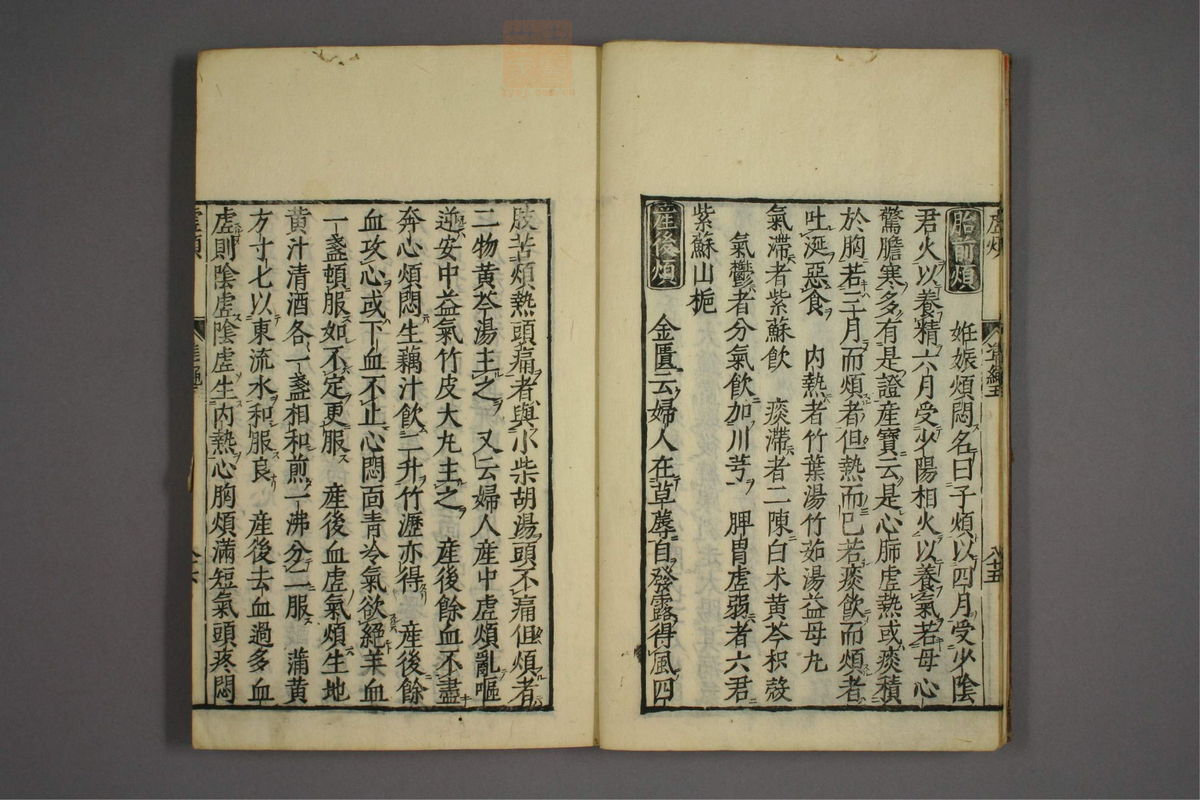 胎前煩　姙娠煩悶名曰子煩以四月受少陰
君火以養精六月受少陽相火以養氣若母心
驚膽寒多有是證產寶云是心肺虚熱或痰積
於胸若三月而煩者但熱而已若痰飲而煩者
吐涎惡食　内熱者竹葉湯竹茹湯益母丸
氣滯者紫蘇飲　痰滯者二陳白术黄芩枳殻
氣鬱者分氣飲加川芎　脾胃虚弱者六君
紫蘇山梔
産後煩　金匱云婦人在草蓐自發露得風四
肢苦煩熱頭痛者與小柴胡湯頭不痛但煩者
三物黄芩湯主之　又云婦人産中虚煩亂嘔
逆安中益氣竹皮大丸主之　産後餘血不盡
奔心煩悶生藕汁飲二升竹瀝亦得　産後餘
血攻心或下血不止心悶面青冷氣欲絶羊血
一盞頓服如不定更服　産後血虚氣煩生地
黄汁清酒各一盞相和煎一沸分二服　蒲黄
方寸七以東流水和服良　産後去血過多血
虚則陰虚陰虚生内熱心胸煩滿短氣頭疼悶